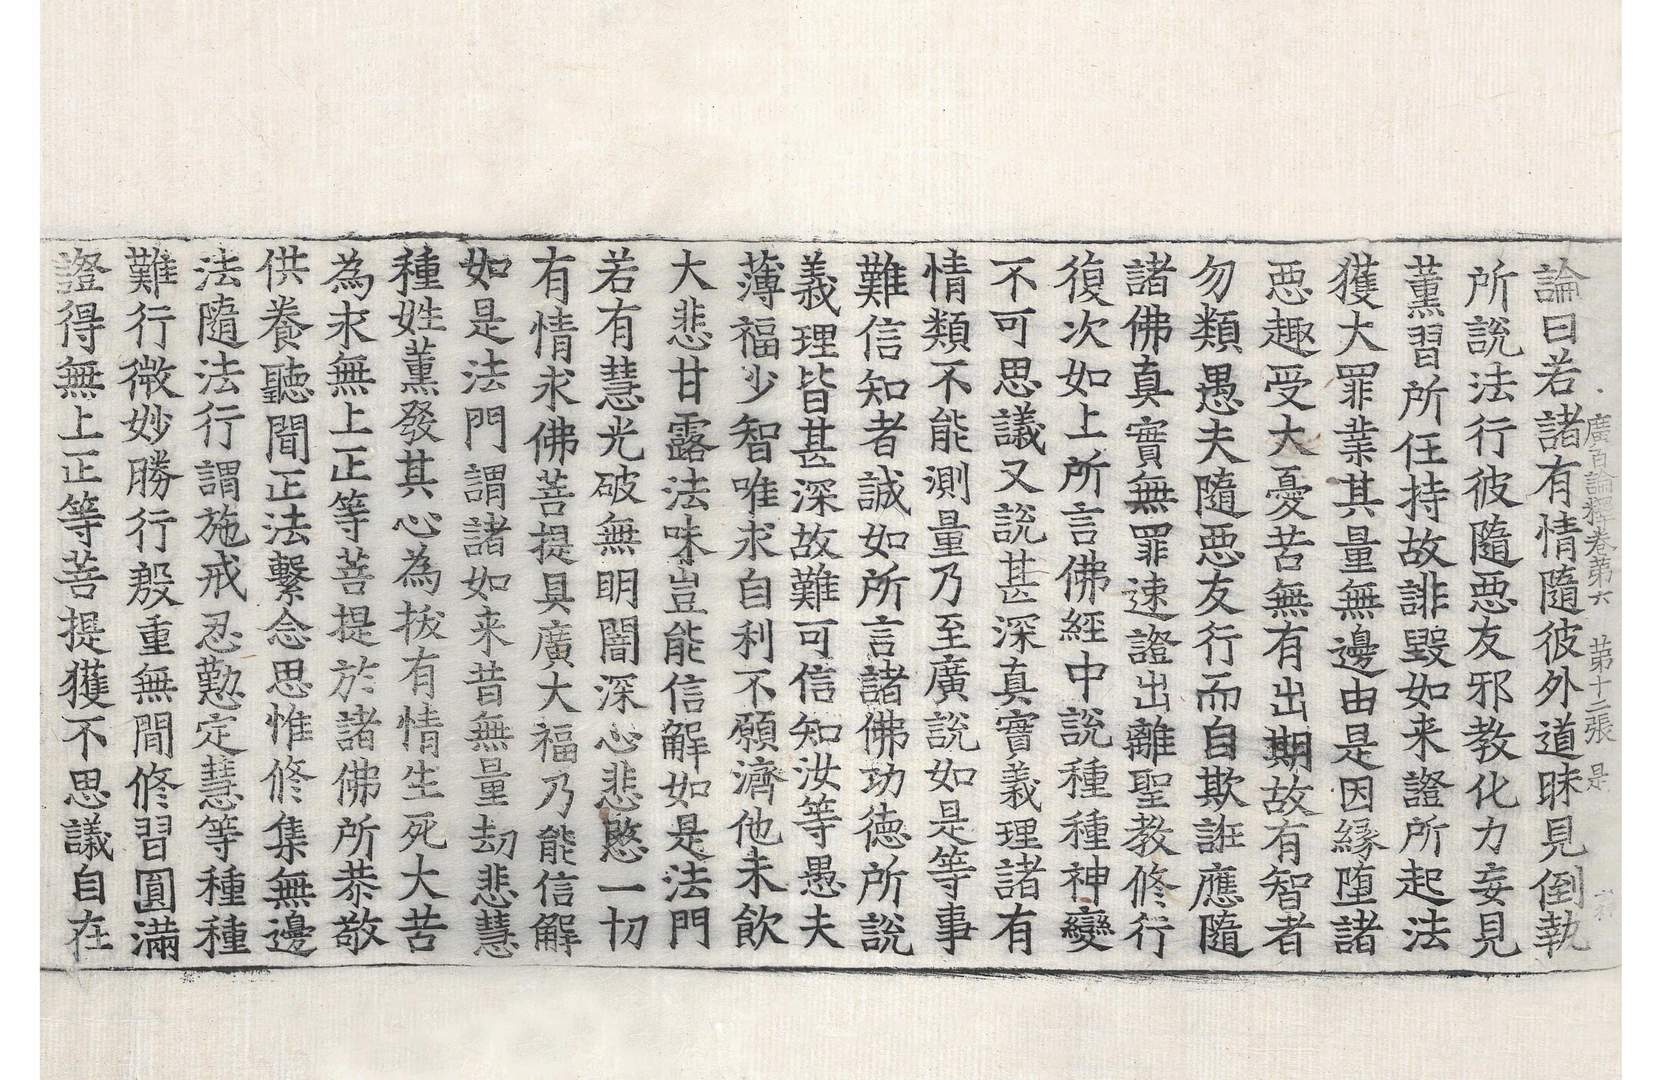 廣百論釋卷第六　第十二張　是
論曰若諸有情隨彼外道昧見倒執
所說法行彼隨惡友邪教化力妄見
薰習所任持故誹毀如来證所起法
獲大罪業其量無邊由是因縁墮諸
惡趣受大憂苦無有出期故有智者
勿類愚夫隨惡友行而自欺誑應隨
諸佛真實無罪速證出離聖教修行
復次如上所言佛經中說種種神變
不可思議又說甚深真實義理諸有
情類不能測量乃至廣說如是等事
難信知者誠如所言諸佛功德所說
義理皆甚深故難可信知汝等愚夫
薄福少智唯求自利不願濟他未飲
大悲甘露法味豈能信解如是法門
若有慧光破無明闇深心悲愍一切
有情求佛菩提具廣大福乃能信解
如是法門謂諸如来昔無量劫悲慧
種姓薰發其心為拔有情生死大苦
為求無上正等菩提於諸佛所恭敬
供養聽聞正法繫念思惟修集無邊
法隨法行謂施戒忍勤定慧等種種
難行微妙勝行殷重無間修習圓滿
證得無上正等菩提獲不思議自在